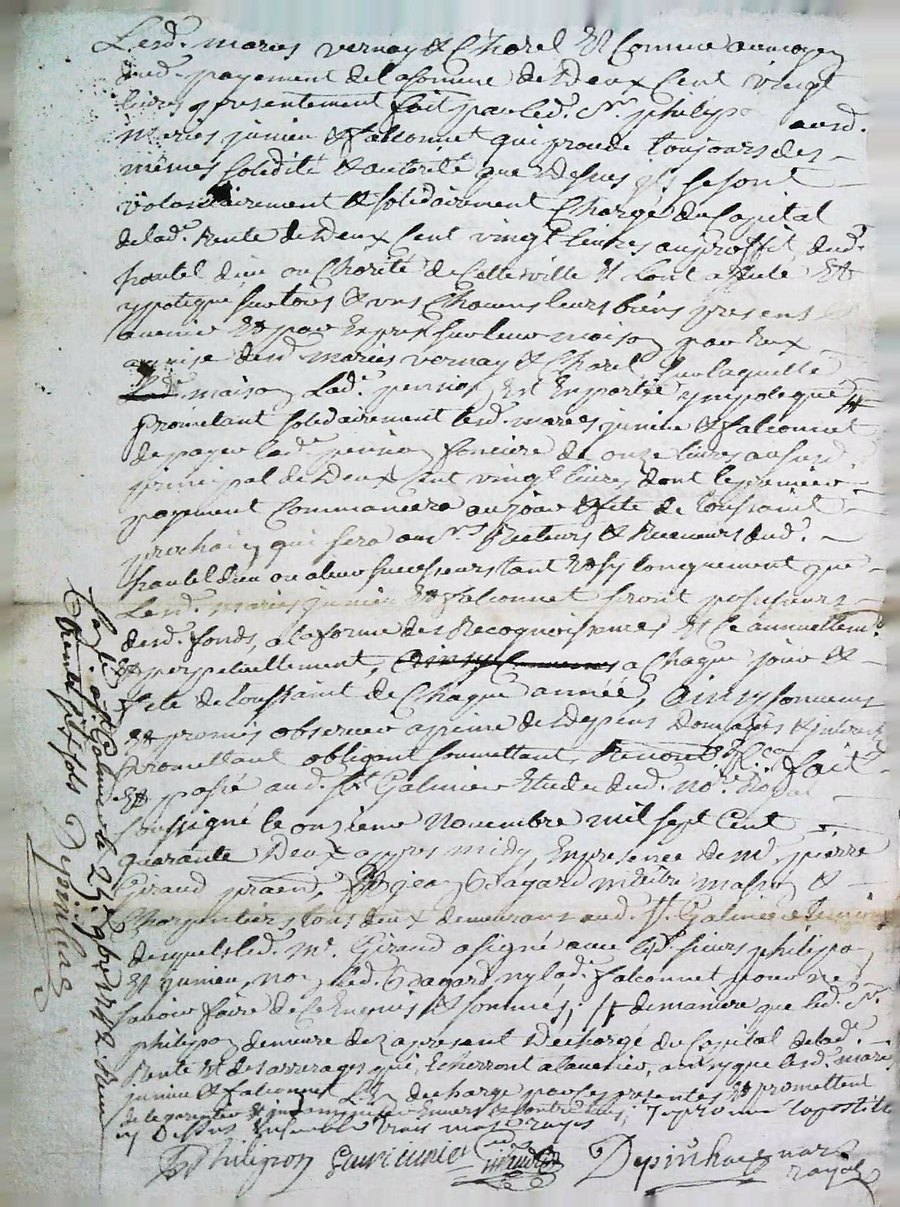 Lesd. maries vernay & Chorel Et Comme au moyen
dud. payement de la somme de Deux Cent vingt
livres presentement fait par led. Sr. philipon aud.
maries junien & falconnet qui procede toujours des
mêmes solidité & autorité que Dessus Ils se sont
volontairement & solidairement Chargé du Capital
de lad. Rente de Deux Cent vingt livres au proffit dud.
hautel dieu ou Charité de Cette ville Et l'ont affecté Et
ypotequé sur tous & uns Chacuns leurs biens presens &
avenir Et par Exprés sur leur maison par Eux
aquise desd. maries vernay & Chorel sur laquelle
maison lad. pension Est En partie ypotequé #
Promettant solidairement lesd. maries junien & falconnet
de payer lad. pension fonciere de onze livres au susd.
principal de Deux Cent vingt livres dont le premier
payement Commancera au jour & fete de toussaint
prochain qui sera aux srs. Recteurs & Receveurs dud.
hautel dieu ou a leur successeurs tant Et sy longuement que
Lesd. maries junien Et falconnet seront possesseurs
desd. fonds, a la forme des Recognoissances Et Ce annuellemt.
& perpetuellement, a Chaque jour &
fete de toussaint de Chaque année, Ainsy Convenus
Et promis observer a peine de Depens Domages & interets
Promettant obligent soumettant Renonct. &c. fait
Et passé aud. St. Galmier Etude dud. nore. Royal
soussigné le onzieme Novembre mil sept Cent
quarante Deux appres midy, En presence de Mr. pierre
Giraud praen. & jean Bagard maitre masson &
Charpentier tous deux demeurans aud. St. Galmier temoins
desquels led. Mr. Giraud a signé avec led. sieurs philipon
Et junien, non led. Bagard ny lad. falconnet pour ne
savoir faire de Ce Enquis & sommés, # de maniere que led. Sr.
philipon demeure dez a present Dechargé du Capital de lad.
Rente Et des arrerages qui Echerront a l'avenir, ainsy que lesd. maries
junien & falconnet L'En decharge par Ces presentes Et promettent
de le garentir Et Envers & Contre tous, J'approuve l'apostille
cy Dessus Ensemble trois mots rayés
Philipon junien Giraud Depinhac nore
royal
Controllé a St. Galmier le 23e. 9bre 1742 Reçu
trente six sols Depinhac